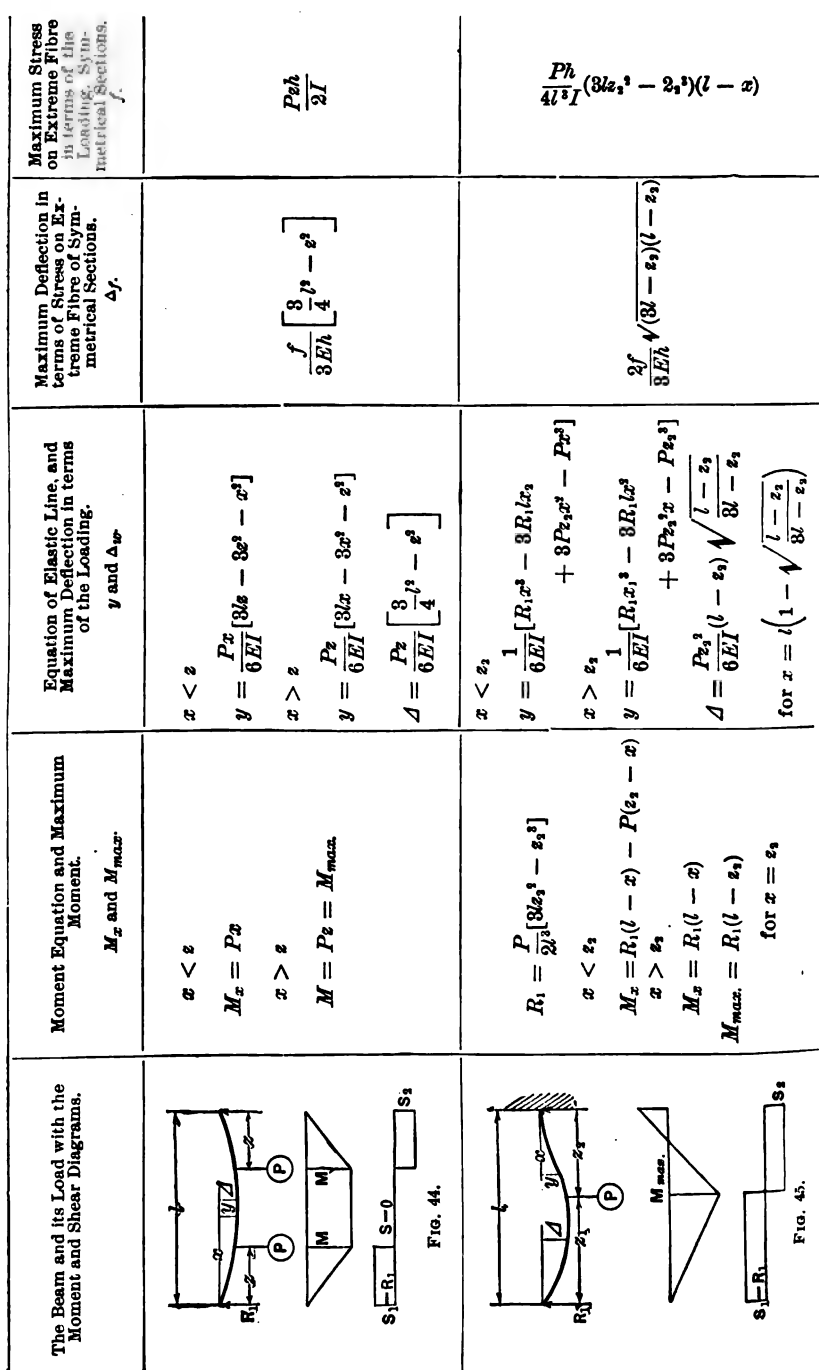 The Beam and its Load with the
Moment and Shear Diagrams.
Moment Equation and Maximum
Moment.
Mₓ and M_max.
Equation of Elastic Line, and
Maximum Deflection in terms
of the Loading.
y and Δ_w.
Maximum Deflection in
terms of Stress on Ex-
treme Fibre of Sym-
metrical Sections.
Δ_f.
Maximum Stress
on Extreme Fibre
in terms of the
Loading. Sym-
metrical Sections.
f.
l
x
y Δ
z
z
R₁
P
P
M
M
S₁=R₁
S=0
S₂
FIG. 44.
x < z
Mₓ = Px
x > z
M = Pz = M_max.
x < z
y = Px/6EI [3lz − 3z² − x²]
x > z
y = Pz/6EI [3lx − 3x² − z²]
Δ = Pz/6EI [3/4 l² − z²]
f/3Eh [3/4 l² − z²]
Pzh/2I
l
Δ
y
x
z₁
z₂
R₁
P
M max.
S₁=R₁
S₂
FIG. 45.
R₁ = P/2l³ [3lz₂² − z₂³]
x < z₂
Mₓ = R₁(l − x) − P(z₂ − x)
x > z₂
Mₓ = R₁(l − x)
M_max. = R₁(l − z₂)
for x = z₂
x < z₂
y = 1/6EI [R₁x³ − 3R₁lx₂
+ 3Pz₂x² − Px³]
x > z₂
y = 1/6EI [R₁x₁³ − 3R₁lx²
+ 3Pz₂²x − Pz₂³]
Δ = Pz₂²/6EI (l − z₂) √(l − z₂/3l − z₂)
for x = l(1 − √(l − z₂/3l − z₂))
2f/3Eh √(3l − z₂)(l − z₂)
Ph/4l³I (3lz₂² − 2₂³)(l − x)